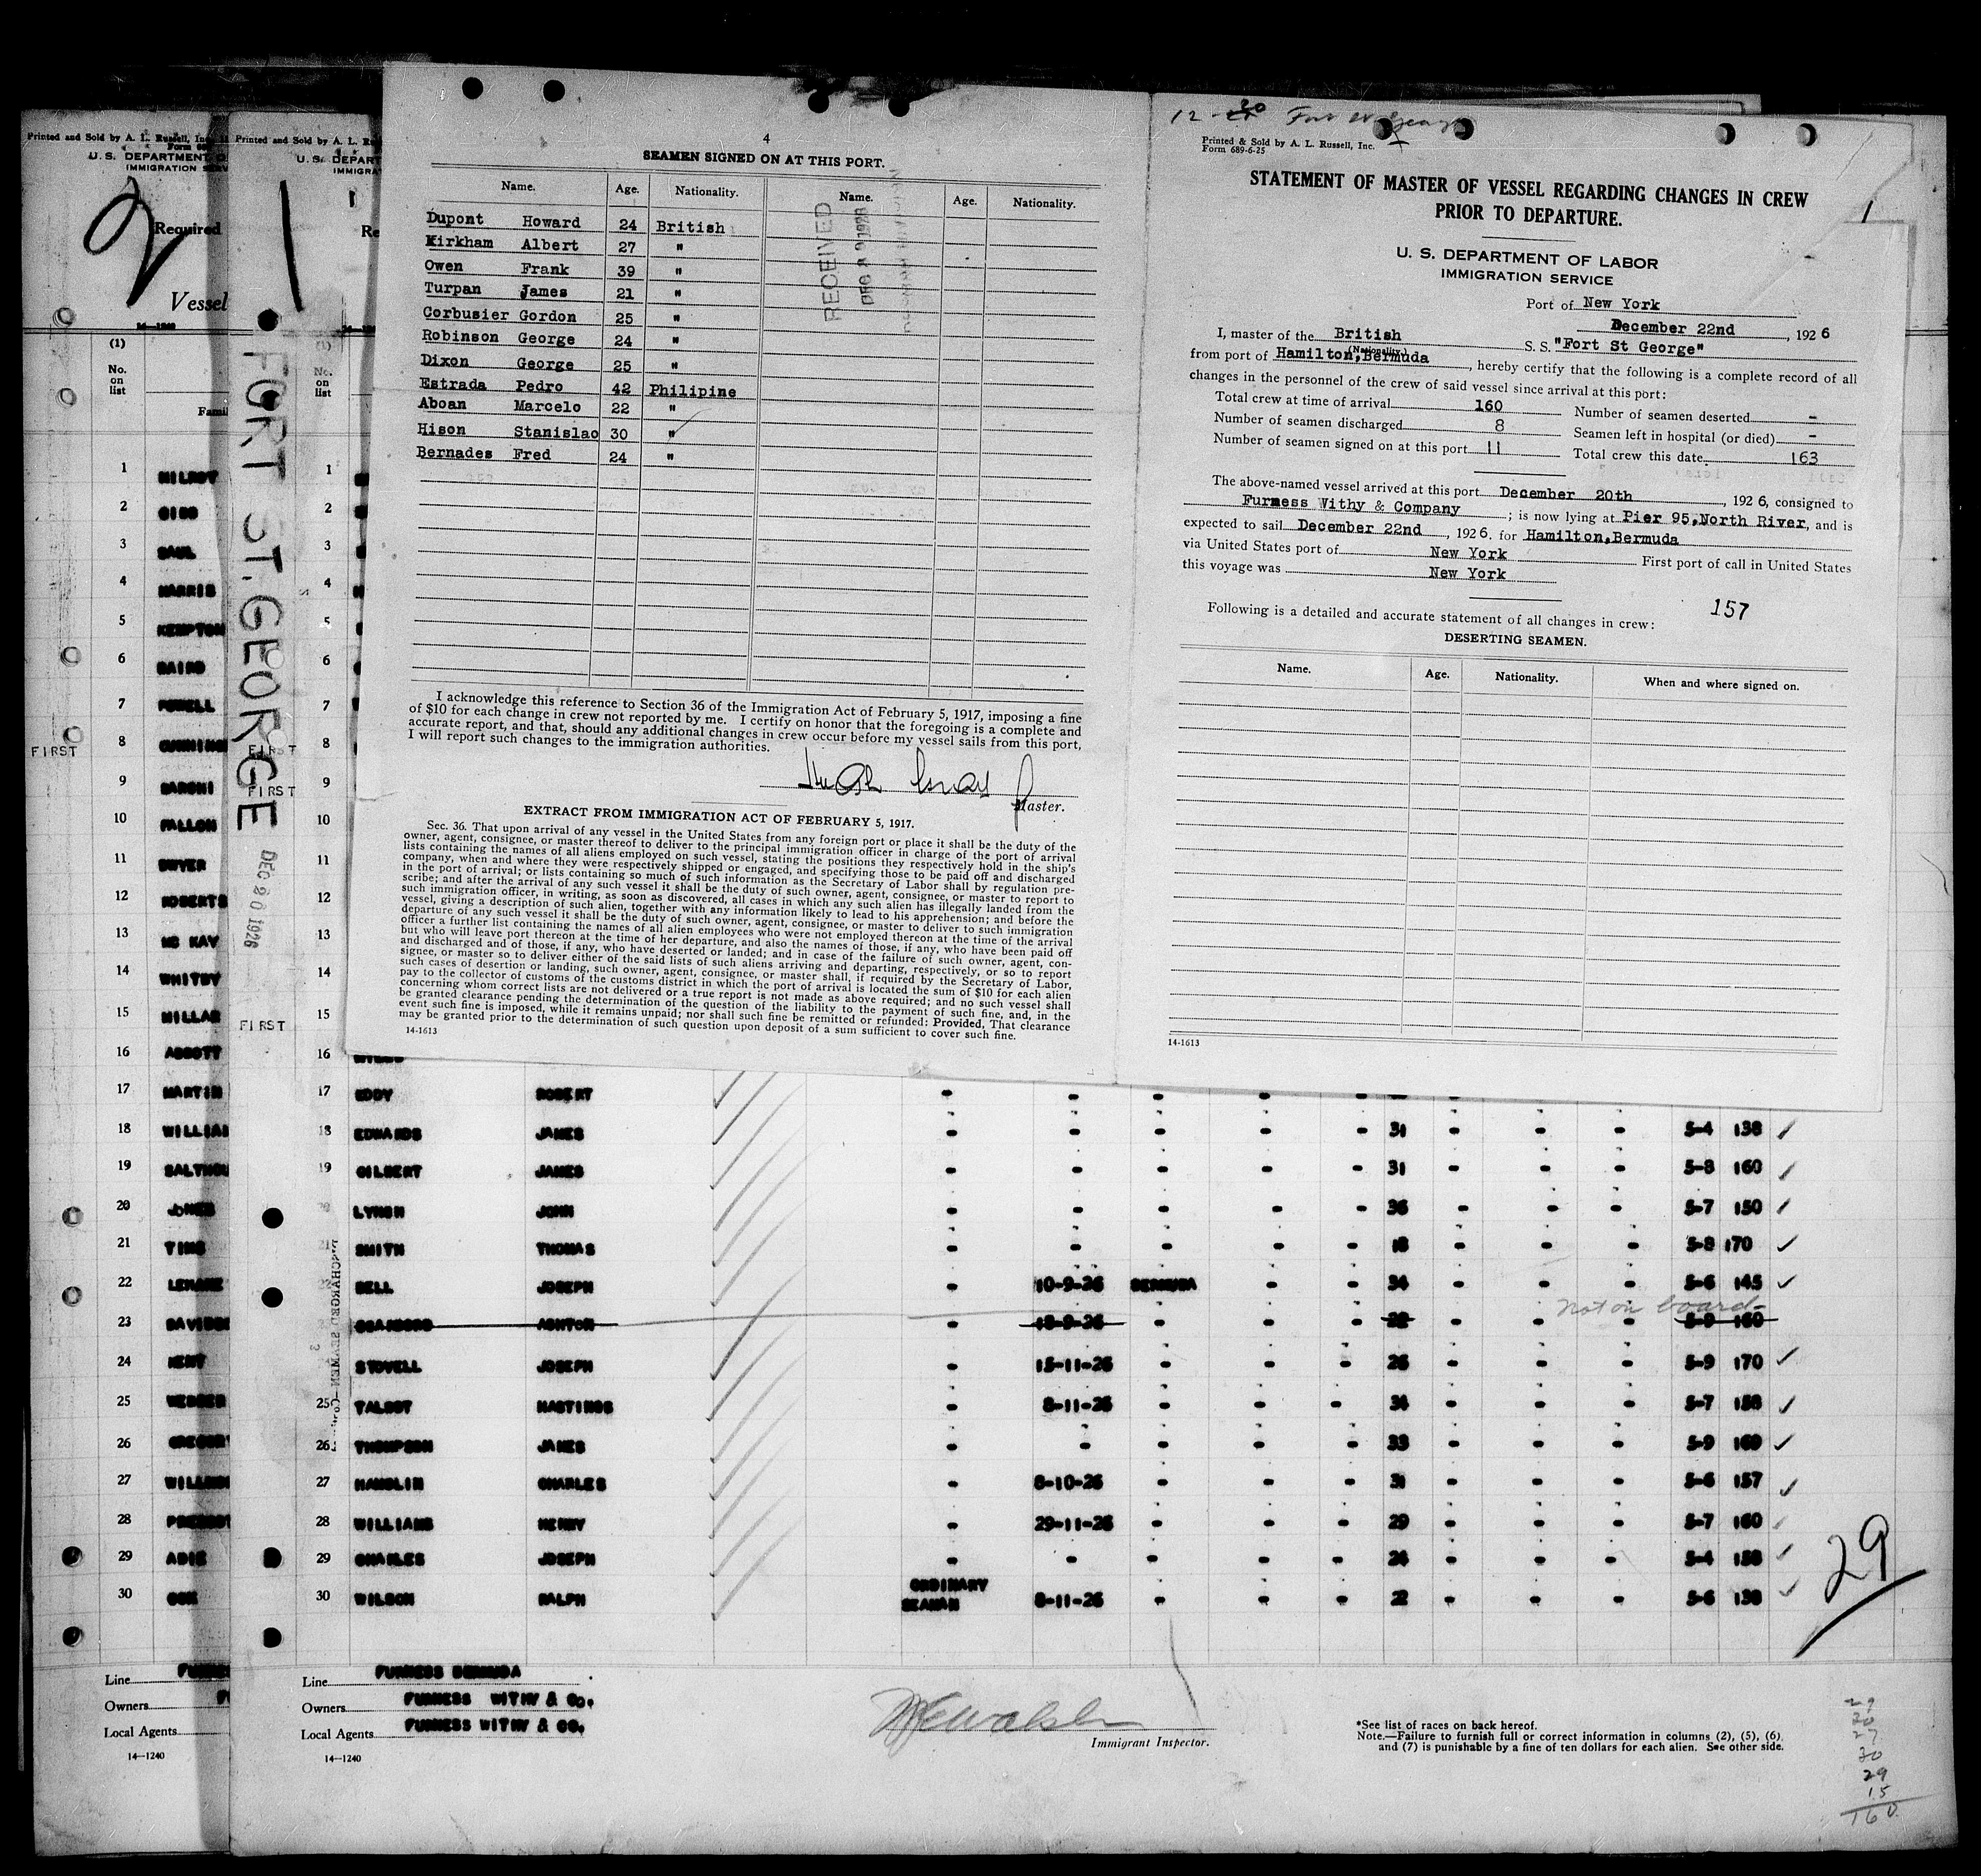 4
SEAMEN SIGNED ON AT THIS PORT.
Name. Age. Nationality. Name. Age. Nationality.
Dupont Howard 24 British
Kirkham Albert 27 "
Owen Frank 39 "
Turpan James 21 "
Corbusier Gordon 25 "
Robinson George 24 "
Dixon George 25 "
Estrada Pedro 42 Philipine
Aboan Marcelo 22 "
Hison Stanislao 30 "
Bernades Fred 24 "
RECEIVED
I acknowledge this reference to Section 36 of the Immigration Act of February 5, 1917, imposing a fine
of $10 for each change in crew not reported by me. I certify on honor that the foregoing is a complete and
accurate report, and that, should any additional changes in crew occur before my vessel sails from this port,
I will report such changes to the immigration authorities.
Master.
EXTRACT FROM IMMIGRATION ACT OF FEBRUARY 5, 1917.
Sec. 36. That upon arrival of any vessel in the United States from any foreign port or place it shall be the duty of the
owner, agent, consignee, or master thereof to deliver to the principal immigration officer in charge of the port of arrival
lists containing the names of all aliens employed on such vessel, stating the positions they respectively hold in the ship's
company, when and where they were respectively shipped or engaged, and specifying those to be paid off and discharged
in the port of arrival; or lists containing so much of such information as the Secretary of Labor shall by regulation pre-
scribe; and after the arrival of any such vessel it shall be the duty of such owner, agent, consignee, or master to report to
such immigration officer, in writing, as soon as discovered, all cases in which any such alien has illegally landed from the
vessel, giving a description of such alien, together with any information likely to lead to his apprehension; and before the
departure of any such vessel it shall be the duty of such owner, agent, consignee, or master to deliver to such immigration
officer a further list containing the names of all alien employees who were not employed thereon at the time of the arrival
but who will leave port thereon at the time of her departure, and also the names of those, if any, who have been paid off
and discharged and of those, if any, who have deserted or landed; and in case of the failure of such owner, agent, con-
signee, or master so to deliver either of the said lists of such aliens arriving and departing, respectively, or so to report
such cases of desertion or landing, such owner, agent, consignee, or master shall, if required by the Secretary of Labor,
pay to the collector of customs of the customs district in which the port of arrival is located the sum of $10 for each alien
concerning whom correct lists are not delivered or a true report is not made as above required; and no such vessel shall
be granted clearance pending the determination of the question of the liability to the payment of such fine, and, in the
event such fine is imposed, while it remains unpaid; nor shall such fine be remitted or refunded: Provided, That clearance
may be granted prior to the determination of such question upon deposit of a sum sufficient to cover such fine.
14-1613
12-20 Fort St George
Printed & Sold by A. L. Russell, Inc.
Form 689-6-25
STATEMENT OF MASTER OF VESSEL REGARDING CHANGES IN CREW
PRIOR TO DEPARTURE.
1
U. S. DEPARTMENT OF LABOR
IMMIGRATION SERVICE
Port of New York
December 22nd, 1926
I, master of the British S. S. "Fort St George"
(Nationality)
from port of Hamilton,Bermuda, hereby certify that the following is a complete record of all
changes in the personnel of the crew of said vessel since arrival at this port:
Total crew at time of arrival 160 Number of seamen deserted -
Number of seamen discharged 8 Seamen left in hospital (or died) -
Number of seamen signed on at this port 11 Total crew this date 163
The above-named vessel arrived at this port December 20th, 1926, consigned to
Furness Withy & Company; is now lying at Pier 95,North River, and is
expected to sail December 22nd, 1926. for Hamilton,Bermuda
via United States port of New York First port of call in United States
this voyage was New York
157
Following is a detailed and accurate statement of all changes in crew:
DESERTING SEAMEN.
Name. Age. Nationality. When and where signed on.
14-1613
Printed and Sold by A. L. Russell, Inc.
U. S. DEPARTMENT O
IMMIGRATION SERV
2
Required
Vessel
14-1240
(1)
No.
on
list
Famil
1
2
3 SAUL
4 HARRIS
5 KEMPTON
6 BAIRD
7 POWELL
FIRST 8 CUNNING
9 BARONI
10 FALLON
11 DWYER
12 ROBERTS
13 MC KAY
14 WHITBY
15 MILLAR
16 ABBOTT
17 MARTIN
18 WILLIA
19 SALTHOU
20 JONES
21 TIMS
22
23 DAVIDS
24 KENT
25 WEBBER
26 GREGORY
27
28
29 ADIE
30 COX
Line
Owners
Local Agents
14—1240
Printed and Sold by A. L. R
U. S. DEPART
IMMIGRA
1
Re
FORT ST. GEORGE
DEC 20 1926
FIRST
FIRST
FIRST
No.
on
list
1
2
3
4
5
6
7
8
9
10
11
12
13
14
15
16
17 EDDY ROBERT
18 EDWARDS JAMES - - - - - 31 - - - 5-4 138
19 GILBERT JAMES - - - - - 31 - - - 5-8 160
20 LYNCH JOHN - - - - - 36 - - - 5-7 150
21 SMITH THOMAS - - - - - 18 - - - 5-8 170
22 BELL JOSEPH - 10-9-26 BERMUDA - - 34 - - - 5-6 145
not on board
23 ASHTON - 18-9-26 - - - 22 - - - 5-9 160
24 STOVELL JOSEPH - 15-11-26 - - - 26 - - - 5-9 170
25 TALBOT HASTINGS - 8-11-26 - - - 34 - - - 5-7 158
26 THOMPSON JAMES - - - - - 33 - - - 5-9 160
27 HAMBLIN CHARLES - 8-10-26 - - - 31 - - - 5-6 157
28 WILLIAMS HENRY - 29-11-26 - - - 29 - - - 5-7 160
29 CHARLES JOSEPH - - - - - 24 - - - 5-4 158
30 WILSON RALPH ORDINARY SEAMAN 8-11-26 - - - 22 - - - 5-6 138
29
DISCHARGED SEAMEN
Line FURNESS BERMUDA
Owners FURNESS WITHY & CO.
Local Agents FURNESS WITHY & CO.
14—1240
Immigrant Inspector.
*See list of races on back hereof.
Note.—Failure to furnish full or correct information in columns (2), (5), (6)
and (7) is punishable by a fine of ten dollars for each alien. See other side.
29
30
27
30
29
15
160